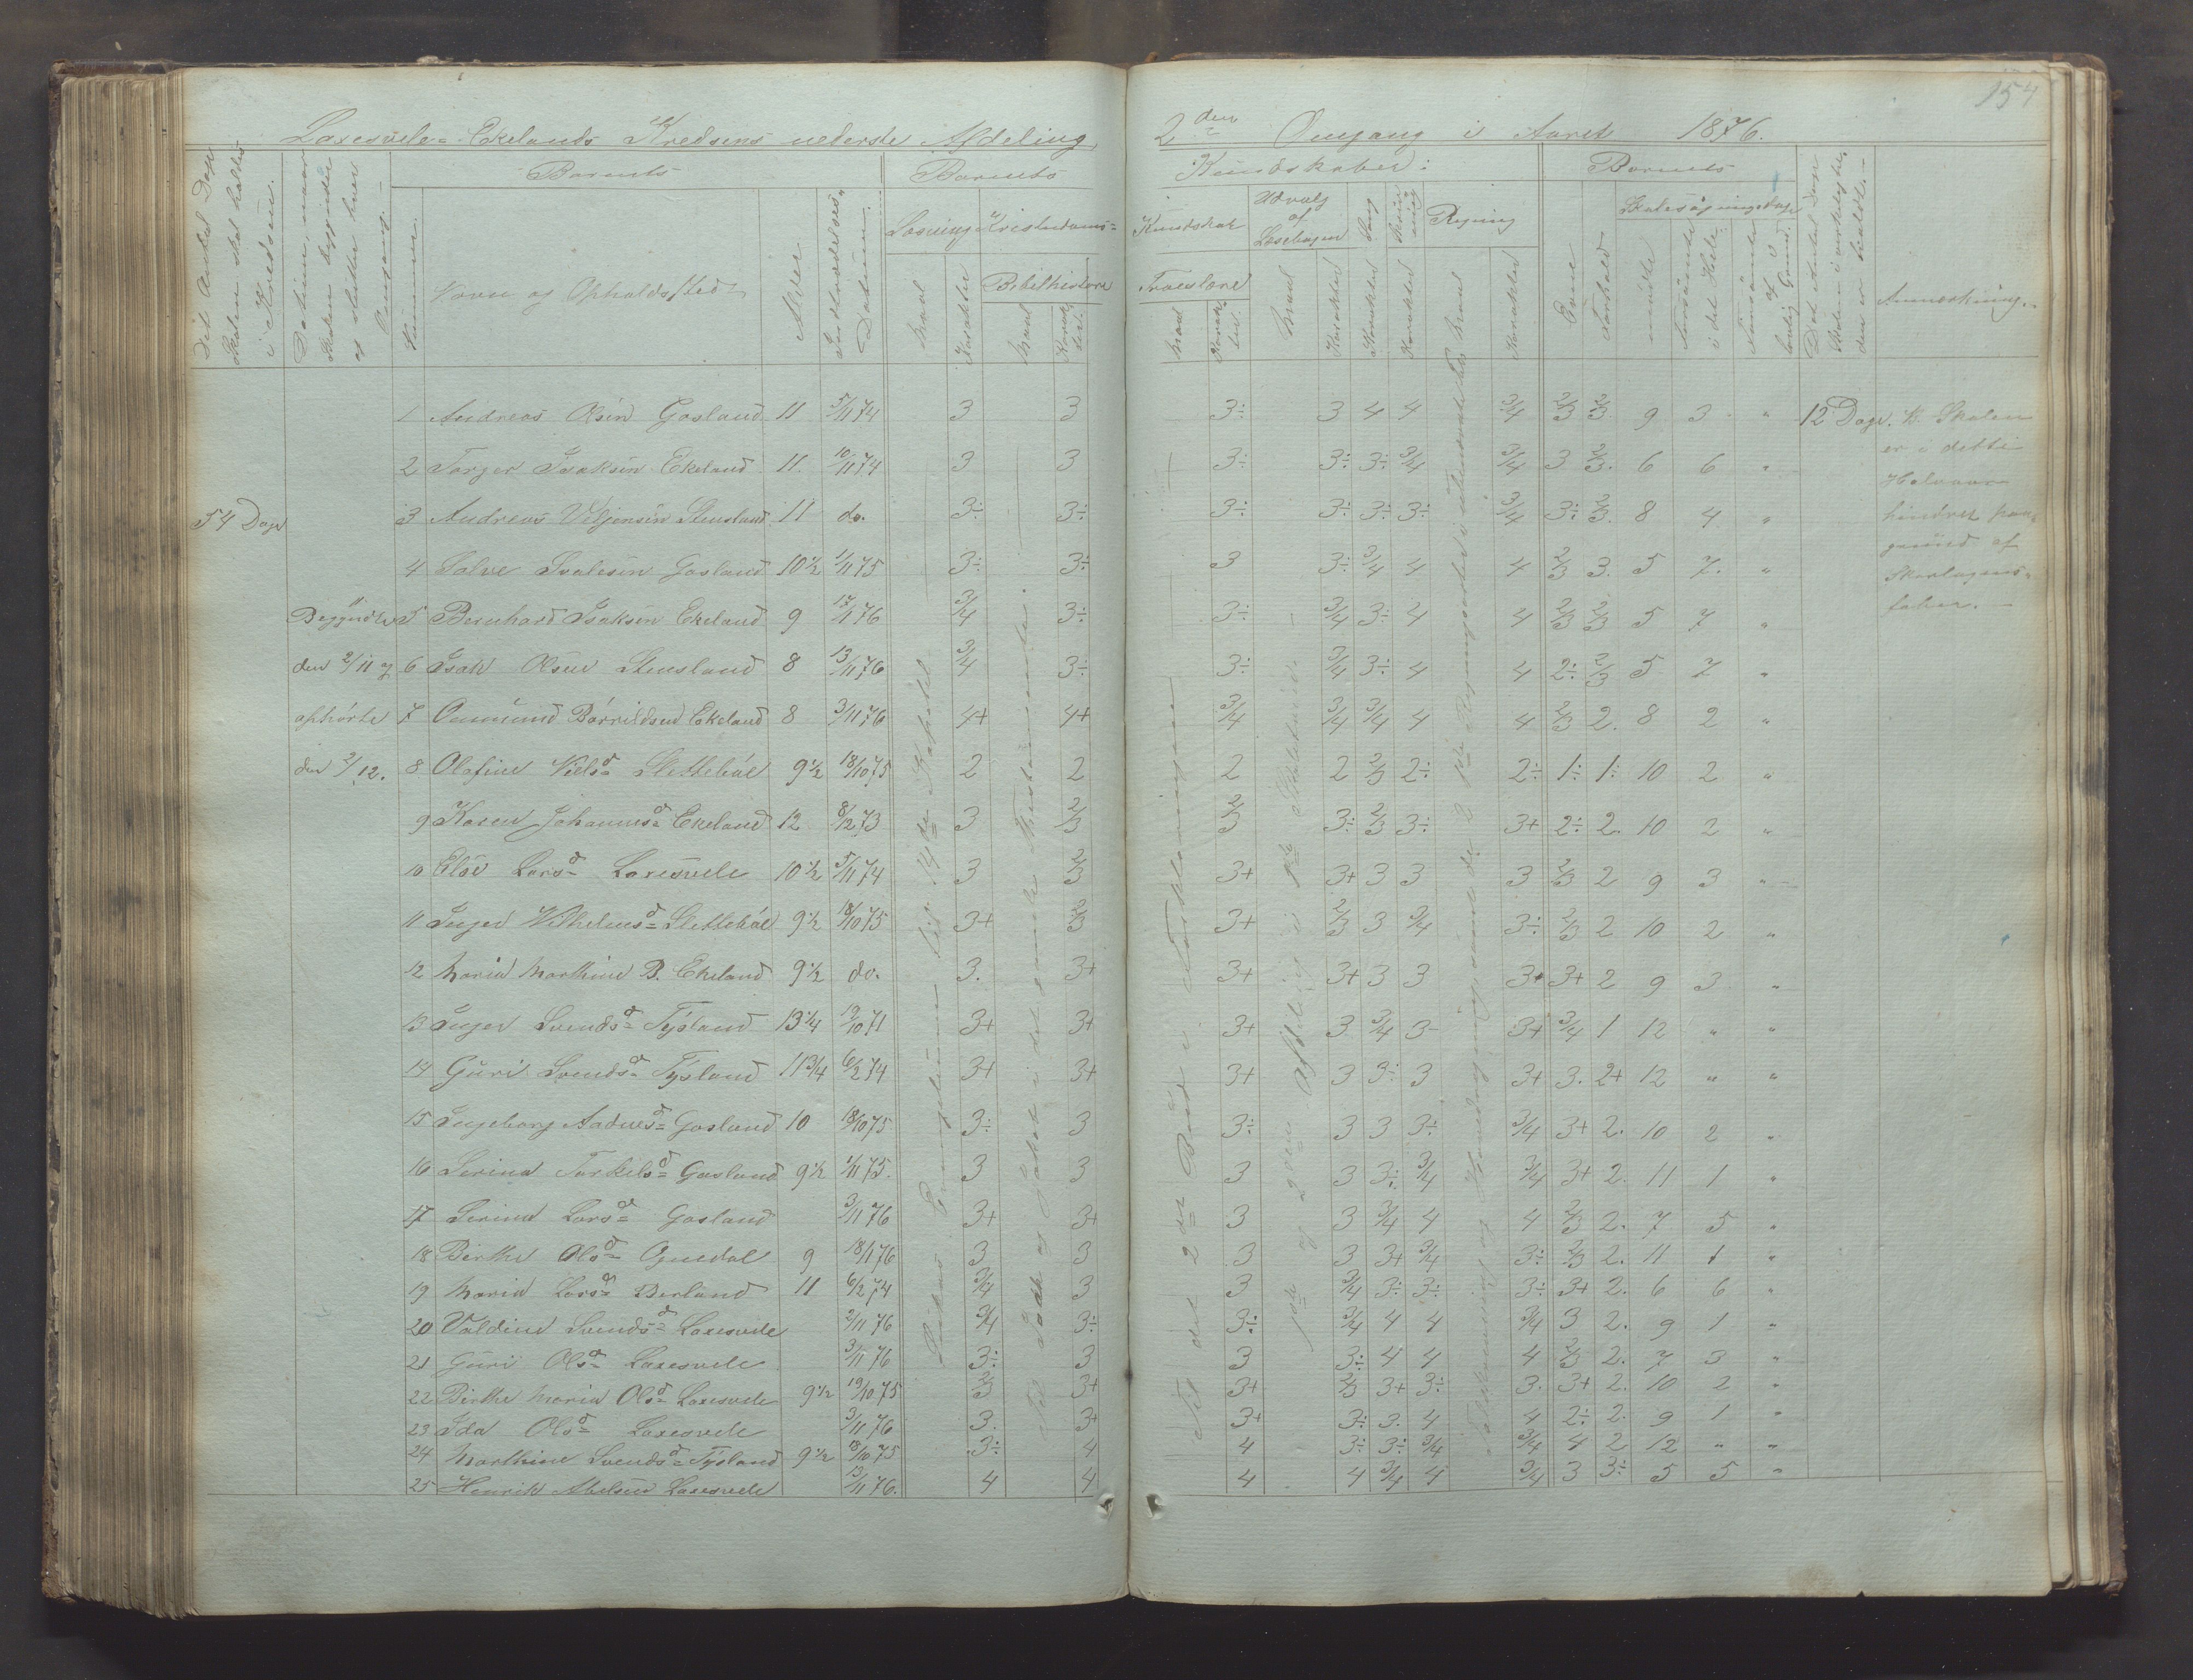 154
Laxesvele- Ekelands Kredsens nederste Afdeling,
2den Omgang i Aaret 1876.
Det Antal Dage Skolen skal holdes i Kredsen.
Datum, naar Skolen begynder og slutter hver Omgang.
Barnets
Nummer.
Navn og Opholdssted
Alder
Indtrædelses- Datum.
Barnets
Kundskaber:
Læsning
Maal
Karakter
Kristendoms-
Kundskab
Bibelhistorie
Maal
Karakter.
Troeslære
Maal
Karakter.
Udvalg af Læsebogen
Maal
Karakter
Sang
Karakter
Skrivning
Karakter
Regning
Maal
Karakter
Barnets
Evne
Forhold
Skolesøgningsdage
mødte
Forsømte i det Hele.
Forsømte af lovlig Grund.
Det Antal Dage Skolen i virkeligheden er holdt.
Anmærkning.
1 Andreas Olsen Gosland 11 5/11 74 3 3 3÷ 3 4 4 3/4 2/3 2/3 9 3 " 12 Dage. N. Skolen
2 Tørger Isaksen Ekeland 11. 10/11 74 3 3 3÷ 3÷ 3÷ 3/4 3/4 3 2/3. 6 6 " er i dette
Halvaar
54 Dage 3 Andreas Veljensen Stensland 11 do. 3÷ 3÷ 3÷ 3÷ 3÷ 3÷ 3/4 3÷ 2/3 8 4 " hindret paa
grund af
4 Salve Svalesen Gosland 10 1/2 1/11 75 3÷ 3÷ 3 3÷ 3/4 4 4 2/3 3. 5 7. " Skarlagens-
Begyndte 5 Bernhard Isaksen Ekeland 9 17/1 76 3/4 3÷ 3÷ 3/4 3÷ 4 4 2/3 2/3 5 7 " feber.
den 2/11 og 6 Isak Olsen Stensland 8 13/11 76 3/4 3÷ 3÷ 3/4 3÷ 4 4 2÷ 2/3 5 7 "
ophørte 7 Ommund Børrildsen Ekeland 8 3/11 76 4+ 4+ 3/4 3/4 3/4 4 4 2/3 2. 8 2 "
den 2/12. 8 Olafine Nielsd. Slettebøe 9 1/2 18/10 75 2 2 2 2 2/3 2÷ 2÷ 1÷ 1÷ 10 2 "
9 Karen Johannesd. Ekeland 12 8/12 73 3 2/3 2/3 3÷ 2/3 3÷ 3+ 2÷ 2. 10 2 "
10 Elše Larsd. Laxesvele 10 1/2 5/11 74 3 2/3 3+ 3+ 3 3 3 2/3 2 9 3 "
11 Inger Vilhelmsd. Slettebøe 9 1/2 18/10 75 3+ 2/3 3+ 2/3 3 3/4 3÷ 2/3 2 10 2 "
12 Maria Marthine B. Ekeland 9 1/2 do. 3. 3+ 3+ 3+ 3 3 3+ 3+ 2 9 3 "
13 Inger Svendsd. Tysland 13 1/4 12/10 71 3+ 3+ 3+ 3 3/4 3- 3+ 3/4 1 12 " "
14 Guri Svendsd. Tysland 11 3/4 6/2 74 3+ 3+ 3+ 3 3÷ 3 3+ 3. 2+ 12 " "
15 Ingeborg Aadnesd. Gosland 10 18/10 75 3÷ 3 3÷ 3 3 3÷ 3/4 3+ 2. 10 2 "
16 Serina Torkilsd. Gosland 9 1/2 1/11 75. 3 3 3 3 3÷ 3/4 3/4 3+ 2. 11 1 "
17 Serina Larsd. Gosland 3/11 76 3+ 3+ 3 3 3/4 4 4 2/3 2. 7 5 "
18 Birthe Olsd. Ognedal 9 18/1 76 3 3 3 3 3+ 3/4 3÷ 2/3 2. 11 1 "
19 Maria Larsd. Berland 11 6/2 74 3/4 3 3 3/4 3÷ 3÷ 3÷ 3+ 2. 6 6 "
20 Valdine Svendsd. Laxesvele 2/11 76 3/4 3÷ 3÷ 3/4 4 4 3/4 3 2. 9 1 "
21 Guri Olsd. Laxesvele 3/11 76 3÷ 3 3 3÷ 4 4 4 2/3 2. 7 3 "
22 Birthe Maria Olsd. Laxesvele 9 1/2 19/10 75 2/3 3+ 3+ 2/3 3+ 3÷ 3. 3+ 2. 10 2 "
23 Ida Olsd. Laxesvele 3/11 76 3. 3+ 3+ 3÷ 3. 4 4 2÷ 2. 9 1 "
24 Marthine Svendsd. Tysland 9 1/2 18/10 75 3÷ 4 4 3÷ 3÷ 3/4 3/4 4 2 12 " "
25 Henrik Abelsen Laxesvele 13/11 76. 4 4 4 4 3/4 4 3/4 3 3÷ 5 5 "
Lukas Evangelium til 14de Kapitel
Til Isak og Jakob i det gamle Testamente.
Til det 2det Bud i Forklaringen
1ste og 2den Afdeling